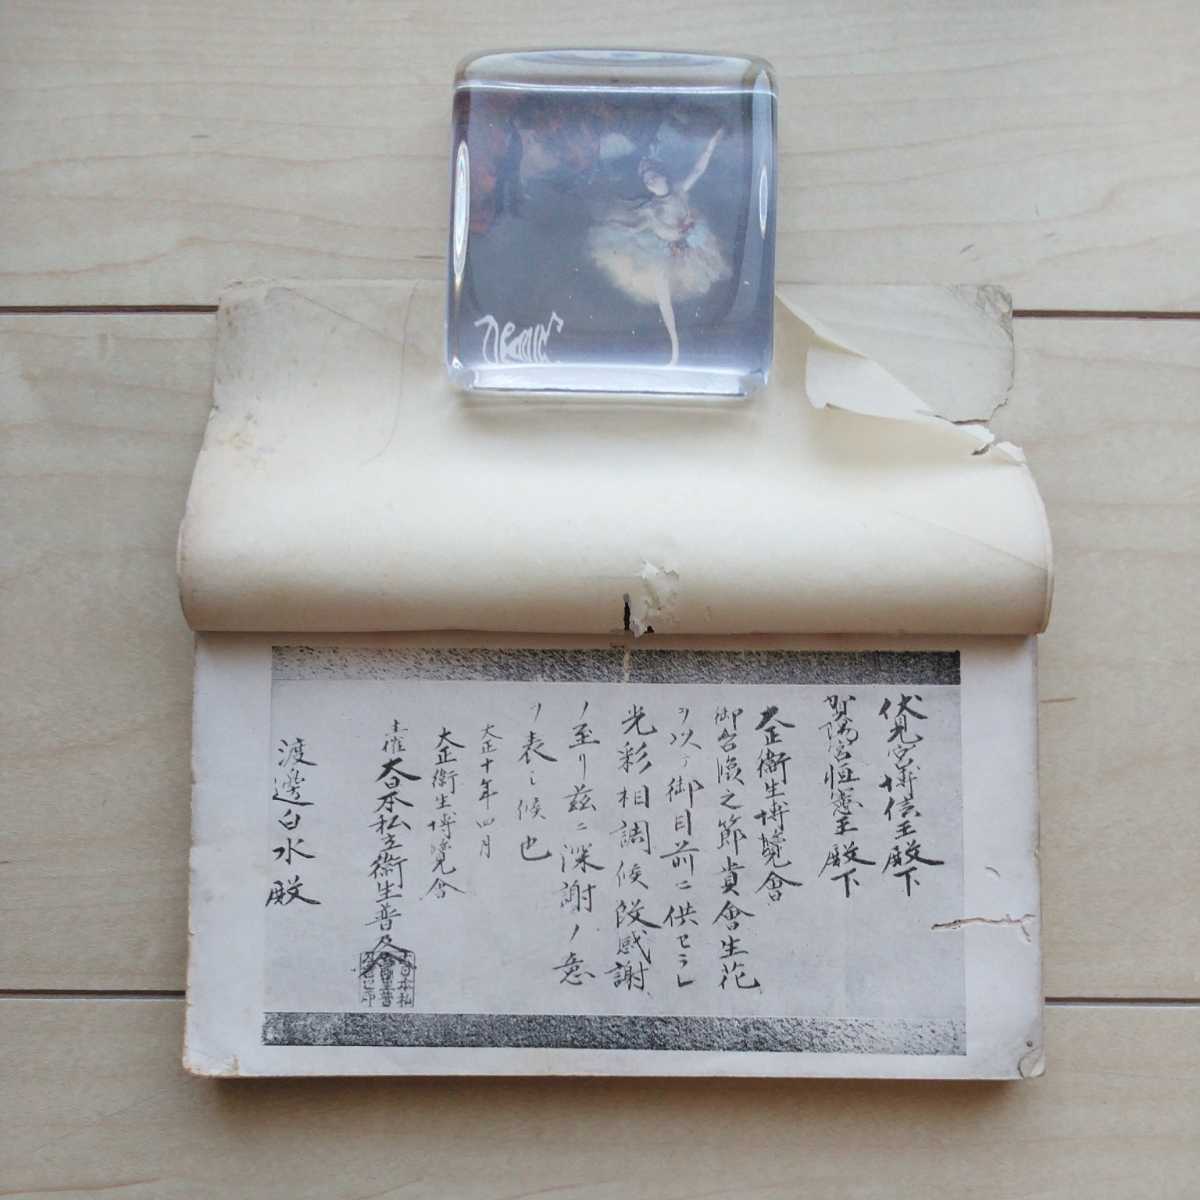 Degas
伏見宮博信王殿下
賀陽宮恒憲王殿下
大正衛生博覧會
御台臨之節貴會生花
ヲ以テ御目前ニ供セラレ
光彩相調候段感謝
ノ至リ茲ニ深謝ノ意
ヲ表シ候也
大正十年四月
大正衛生博覧會
主催大日本私立衛生普及會
渡邊白水殿